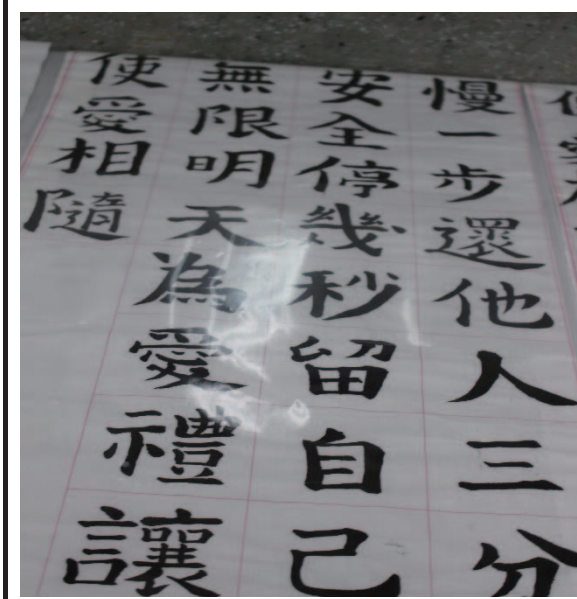 慢一步還他人三分
安全停幾秒留自己
無限明天為愛禮讓
使愛相隨